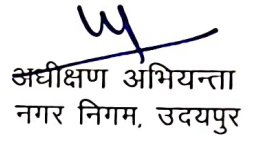 अधीक्षण अभियन्ता
नगर निगम, उदयपुर